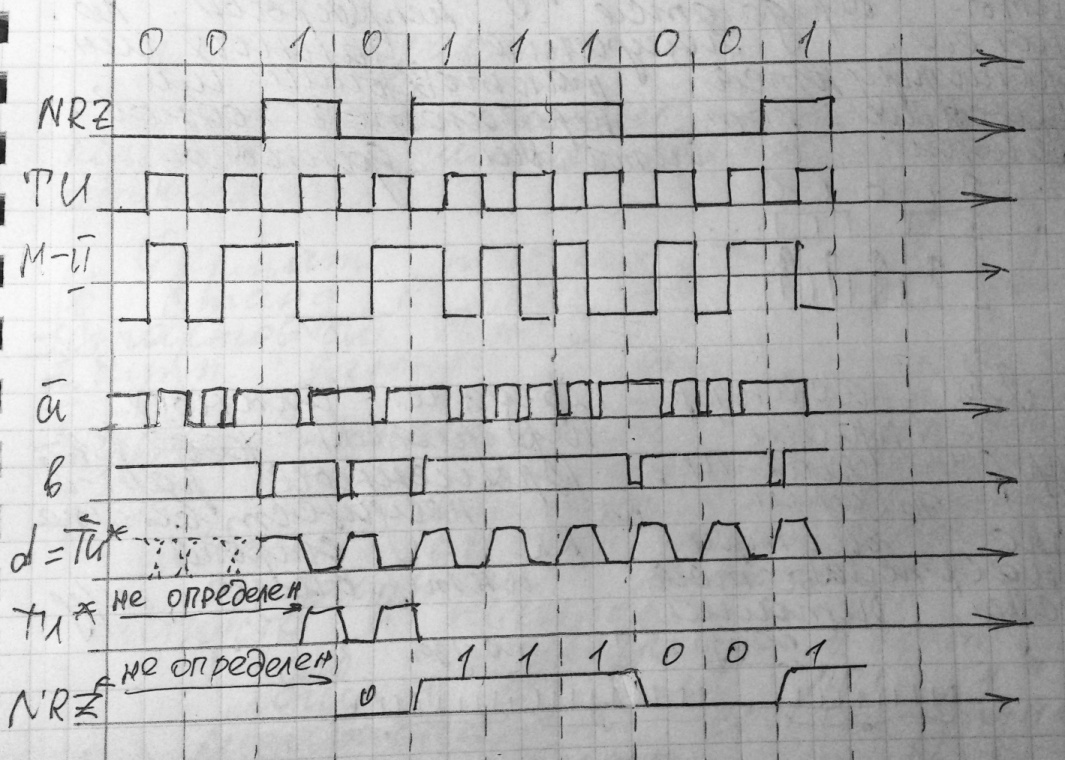 0 0 1 0 1 1 1 0 0 1
NRZ
ТИ
М-II
ā
в
d = ТИ*
не определен
ТИ*
не определен
0 1 1 1 0 0 1
NRZ